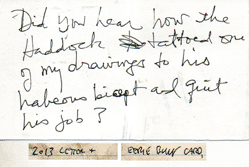 Did you hear how the
Haddock tattoed one
of my drawings to his
habeous bicept and quit
his job?
2013 LETTER +
CARD.